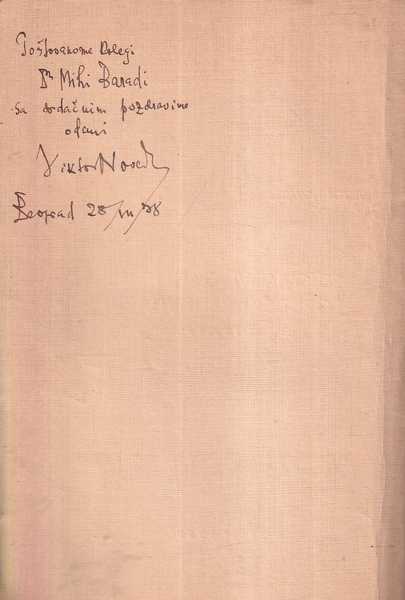 Poštovanome kolegi
Dr Mihi Baradi
sa srdačnim pozdravima
odani
Viktor Novak
Beograd 28/VII/38